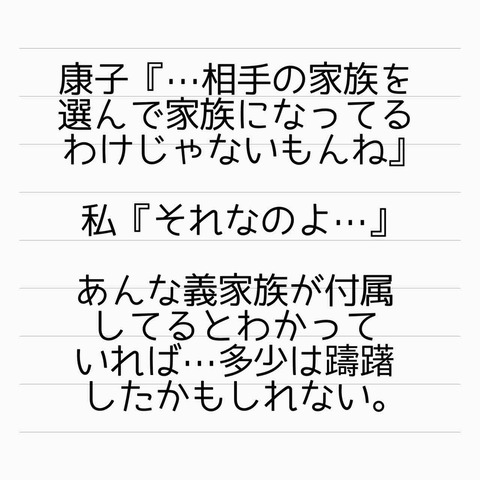 康子『…相手の家族を
選んで家族になってる
わけじゃないもんね』
私『それなのよ…』
あんな義家族が付属
してるとわかって
いれば…多少は躊躇
したかもしれない。